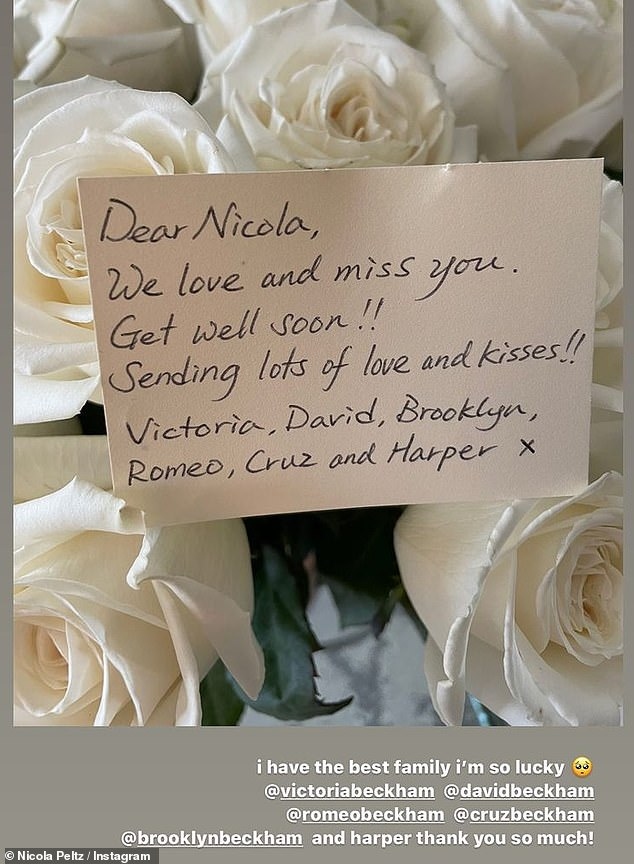 Dear Nicola,
We love and miss you.
Get well soon!!
Sending lots of love and kisses!!
Victoria, David, Brooklyn,
Romeo, Cruz and Harper x
i have the best family i'm so lucky 🥺
@victoriabeckham @davidbeckham
@romeobeckham @cruzbeckham
@brooklynbeckham and harper thank you so much!
© Nicola Peltz / Instagram